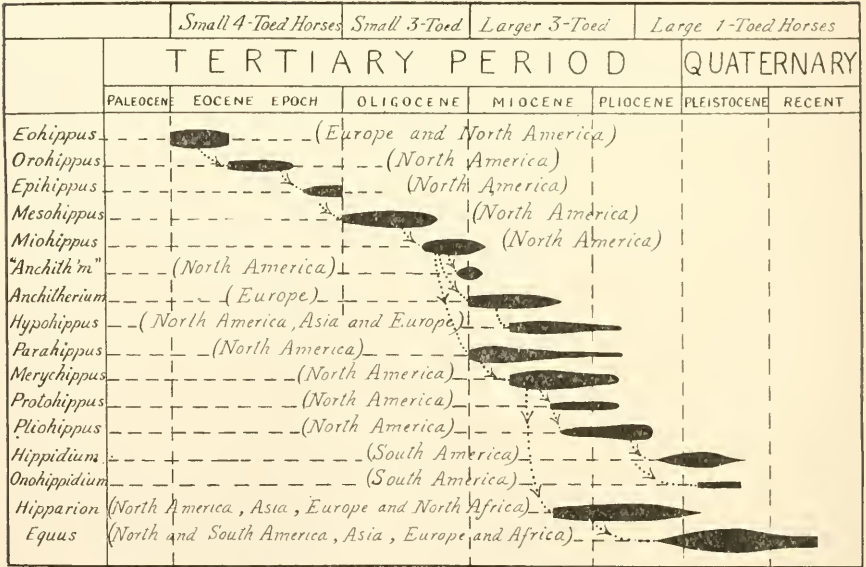 Small 4-Toed Horses Small 3-Toed Larger 3-Toed Large 1-Toed Horses
TERTIARY PERIOD QUATERNARY
PALEOCENE EOCENE EPOCH OLIGOCENE MIOCENE PLIOCENE PLEISTOCENE RECENT
Eohippus (Europe and North America)
Orohippus (North America)
Epihippus (North America)
Mesohippus (North America)
Miohippus (North America)
"Anchith'm" (North America)
Anchitherium (Europe)
Hypohippus (North America, Asia and Europe)
Parahippus (North America)
Merychippus (North America)
Protohippus (North America)
Pliohippus (North America)
Hippidium (South America)
Onohippidium (South America)
Hipparion (North America, Asia, Europe and North Africa)
Equus (North and South America, Asia, Europe and Africa)